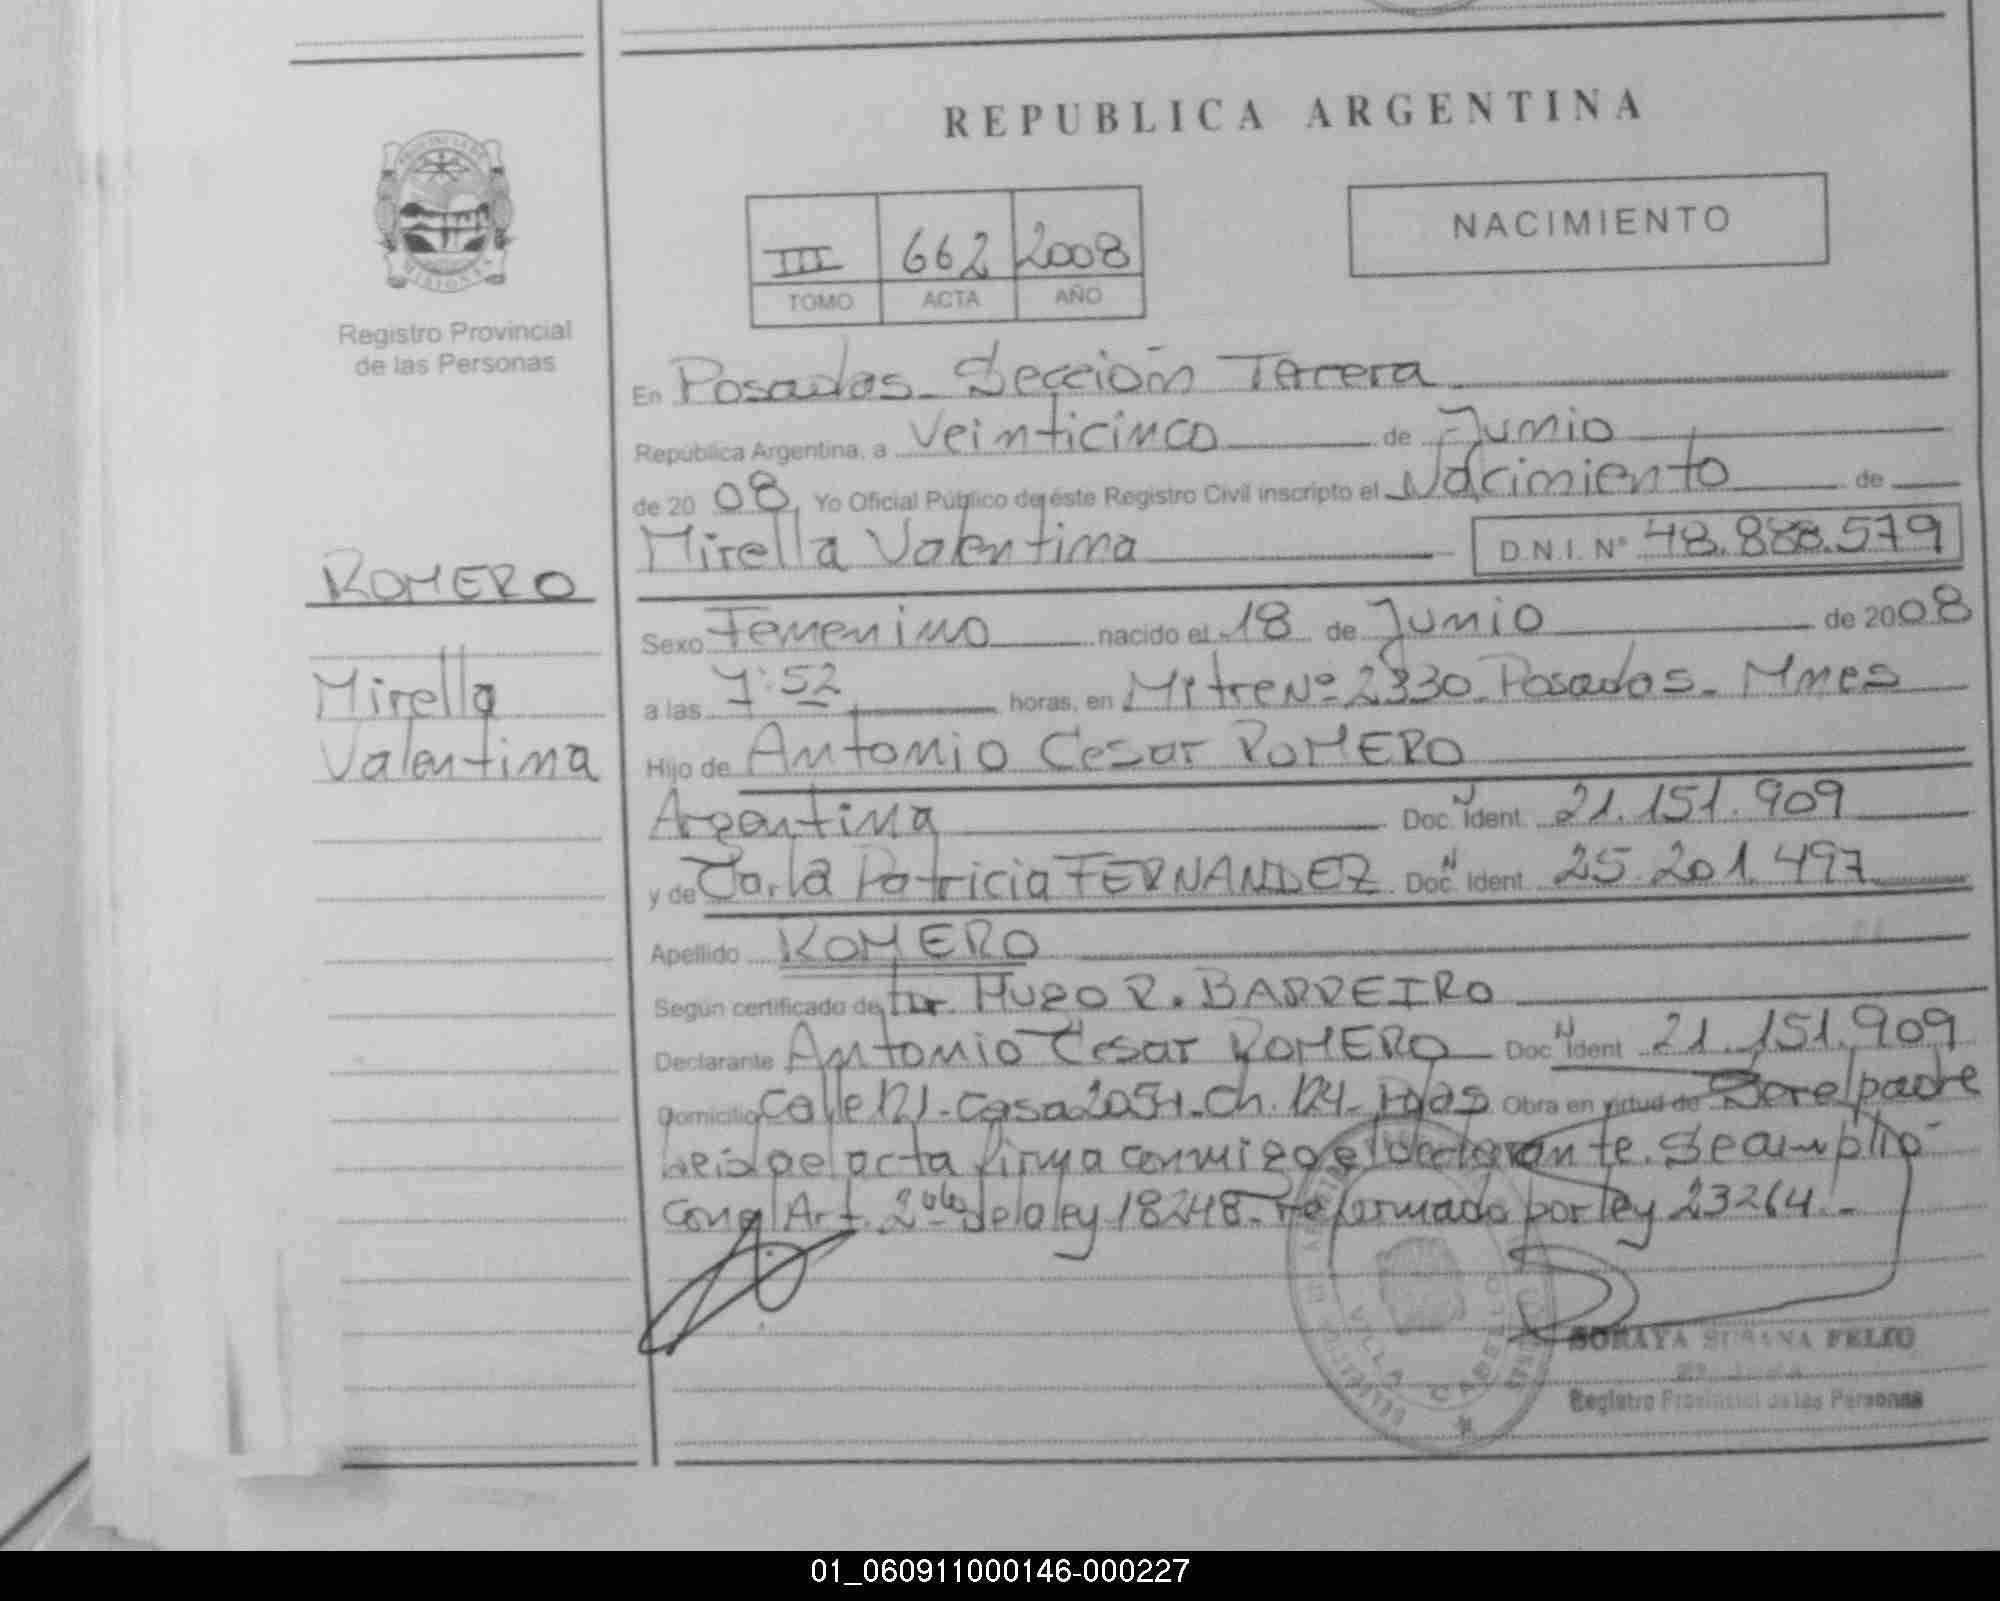 REPUBLICA ARGENTINA
NACIMIENTO
III 662 2008
TOMO ACTA AÑO
PROVINCIA DE
MISIONES
Registro Provincial
de las Personas
En Posadas - Sección Tercera
República Argentina, a Veinticinco de Junio
de 20 08 Yo Oficial Público de éste Registro Civil inscripto el Nacimiento de
Mirella Valentina D.N.I. Nº 48.888.579
ROMERO
Mirella
Valentina
Sexo Femenino nacido el 18 de Junio de 2008
a las 7:52 horas, en Mitre Nº 2330 - Posadas - Mnes
Hijo de Antonio Cesar ROMERO
Argentina Doc. N Ident 21.151.909
y de Carla Patricia FERNANDEZ Doc. N Ident 25.201.497
Apellido ROMERO
Según certificado de Dr. Hugo R. BARREIRO
Declarante Antonio Cesar ROMERO Doc. N Ident 21.151.909
Domicilio Calle 121 - Casa - Ch. 124 - Pdas Obra en virtud de Ser el padre
Leida el acta firma conmigo el declarante. Se cumplió
con el Art. 2 de la ley 18248 - reformado por ley 23264.-
VILLA CABELLO
SORAYA SUSANA FELIO
Registro Provincial de las Personas
01_060911000146-000227